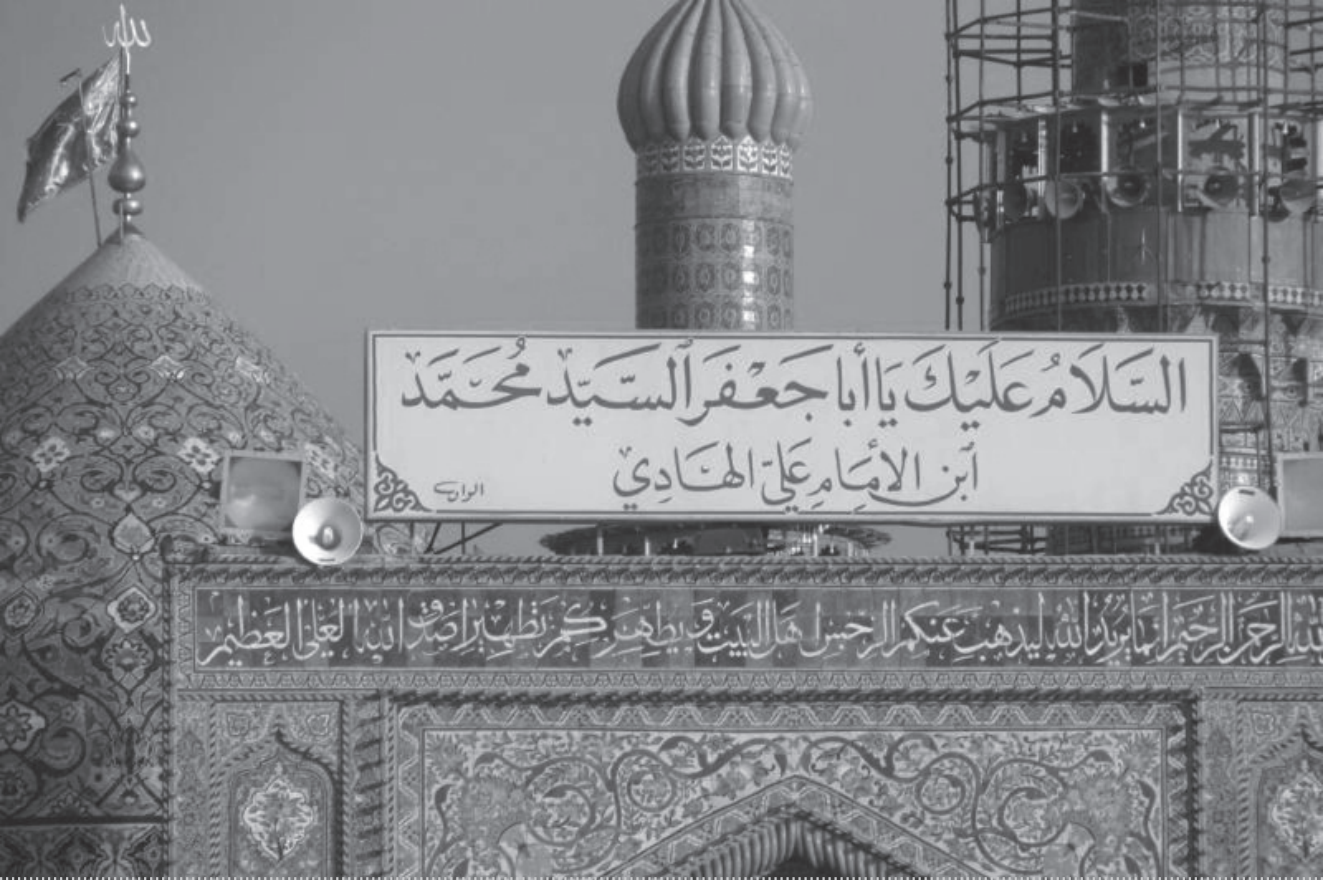 لله
السَّلَامُ عَلَيْكَ يَا أَبَا جَعْفَر ٱلسَّيِّد مُحَمَّد
ٱبن الإمَامِ عَلِيّ الهَادِي
الله الرحمن الرحيم إنما يريد الله ليذهب عنكم الرجس أهل البيت ويطهركم تطهيرا صدق الله العلي العظيم